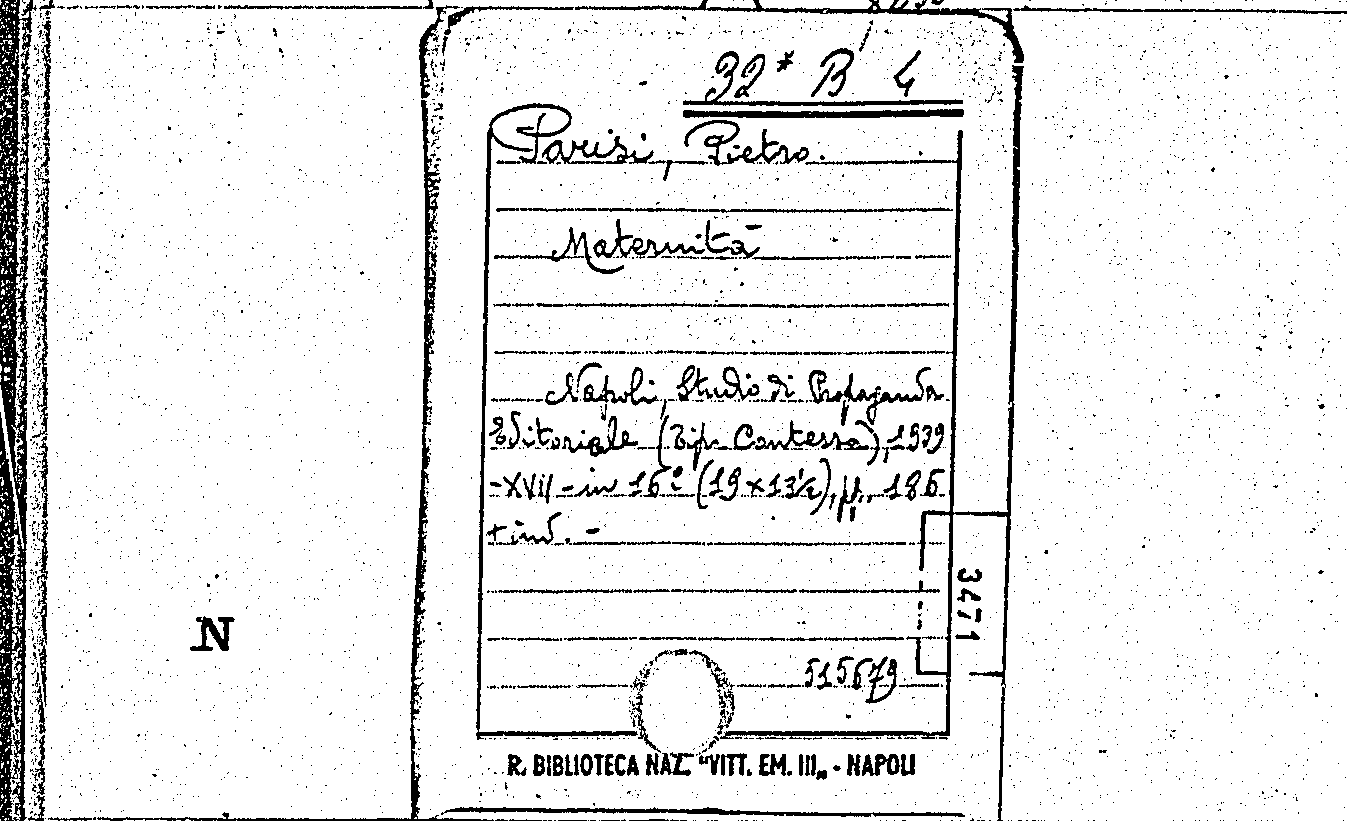 32* B 4
Parisi, Pietro.
Maternità
Napoli, Studio di Propaganda
Editoriale (Tip. Contessa), 1939
-XVII - in 16° (19x13½), pp. 186
+ ind. -
3471
N
515679
R. BIBLIOTECA NAZ. "VITT. EM. III„ - NAPOLI